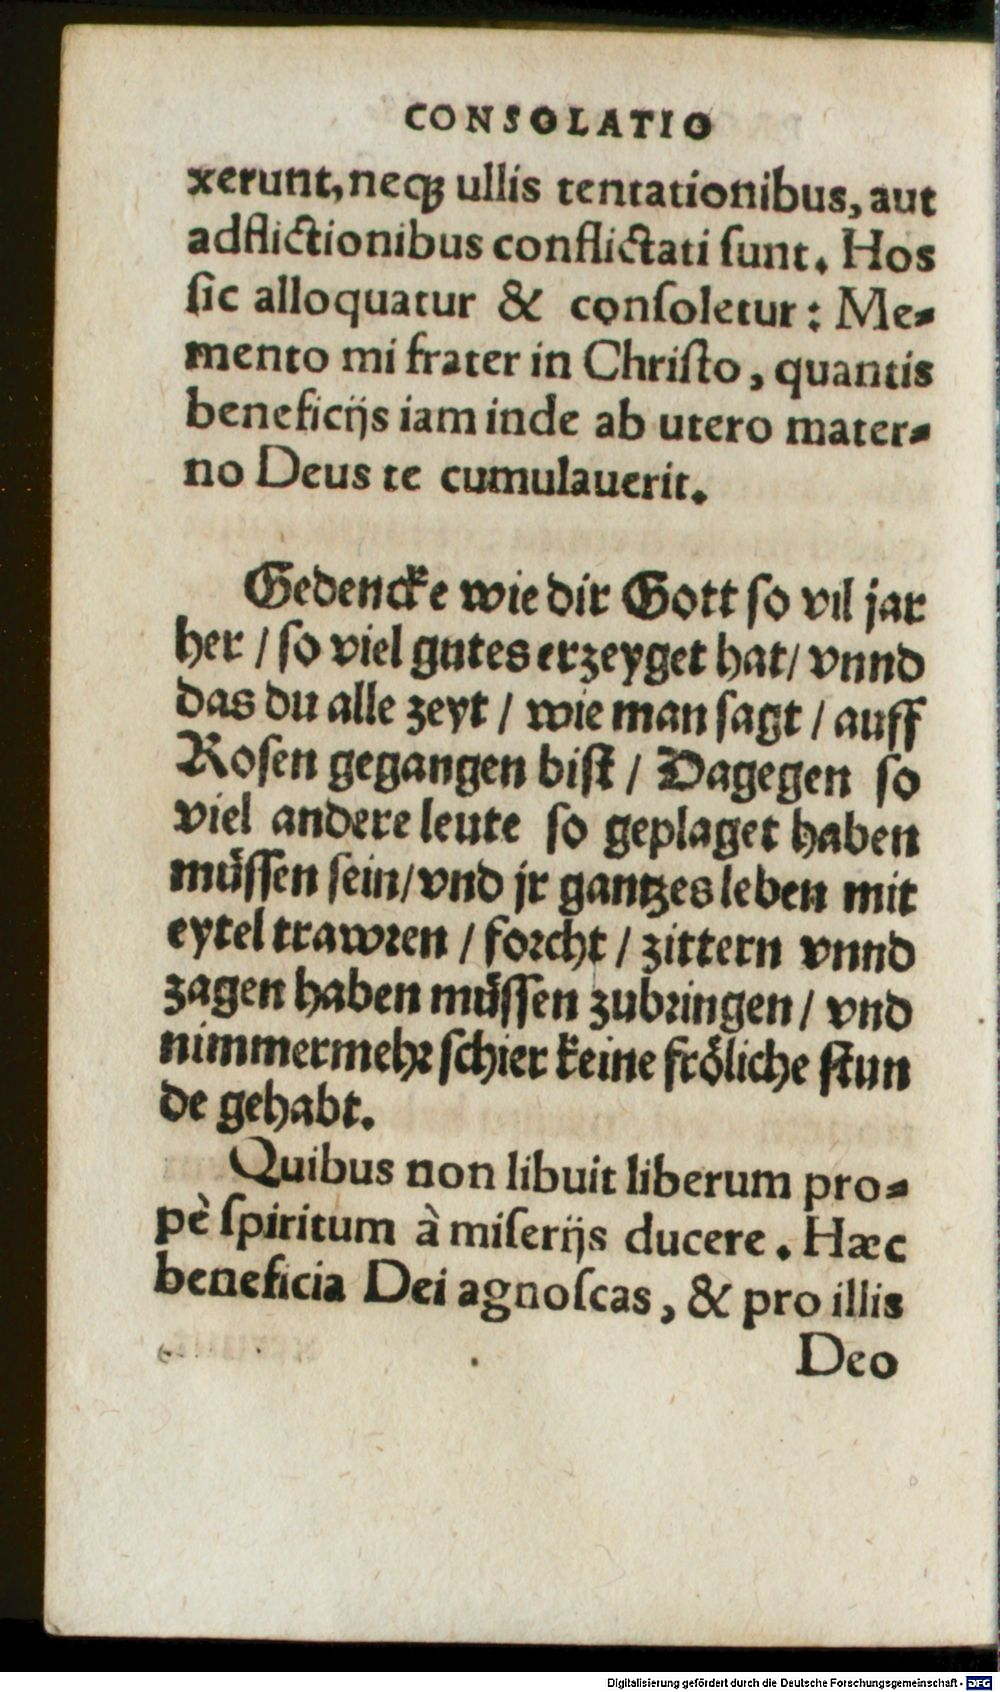 CONSOLATIO
xerunt, neqꝫ ullis tentationibus, aut
adflictionibus conflictati ſunt. Hos
ſic alloquatur & conſoletur: Me-
mento mi frater in Chriſto, quantis
beneficijs iam inde ab utero mater-
no Deus te cumulauerit.
Gedencke wie dir Gott ſo vil jar
her / ſo viel gutes erzeyget hat / vnnd
das du alle zeyt / wie man ſagt / auff
Roſen gegangen biſt / Dagegen ſo
viel andere leute ſo geplaget haben
müſſen ſein / vnd jr gantzes leben mit
eytel trawꝛen / foꝛcht / zittern vnnd
zagen haben müſſen zubꝛingen / vnd
nimmermehꝛ ſchier keine fröliche ſtun
de gehabt.
Quibus non libuit liberum pro-
pè ſpiritum à miſerijs ducere. Hæc
beneficia Dei agnoſcas, & pro illis
Deo
Digitalisierung gefördert durch die Deutsche Forschungsgemeinschaft - DFG